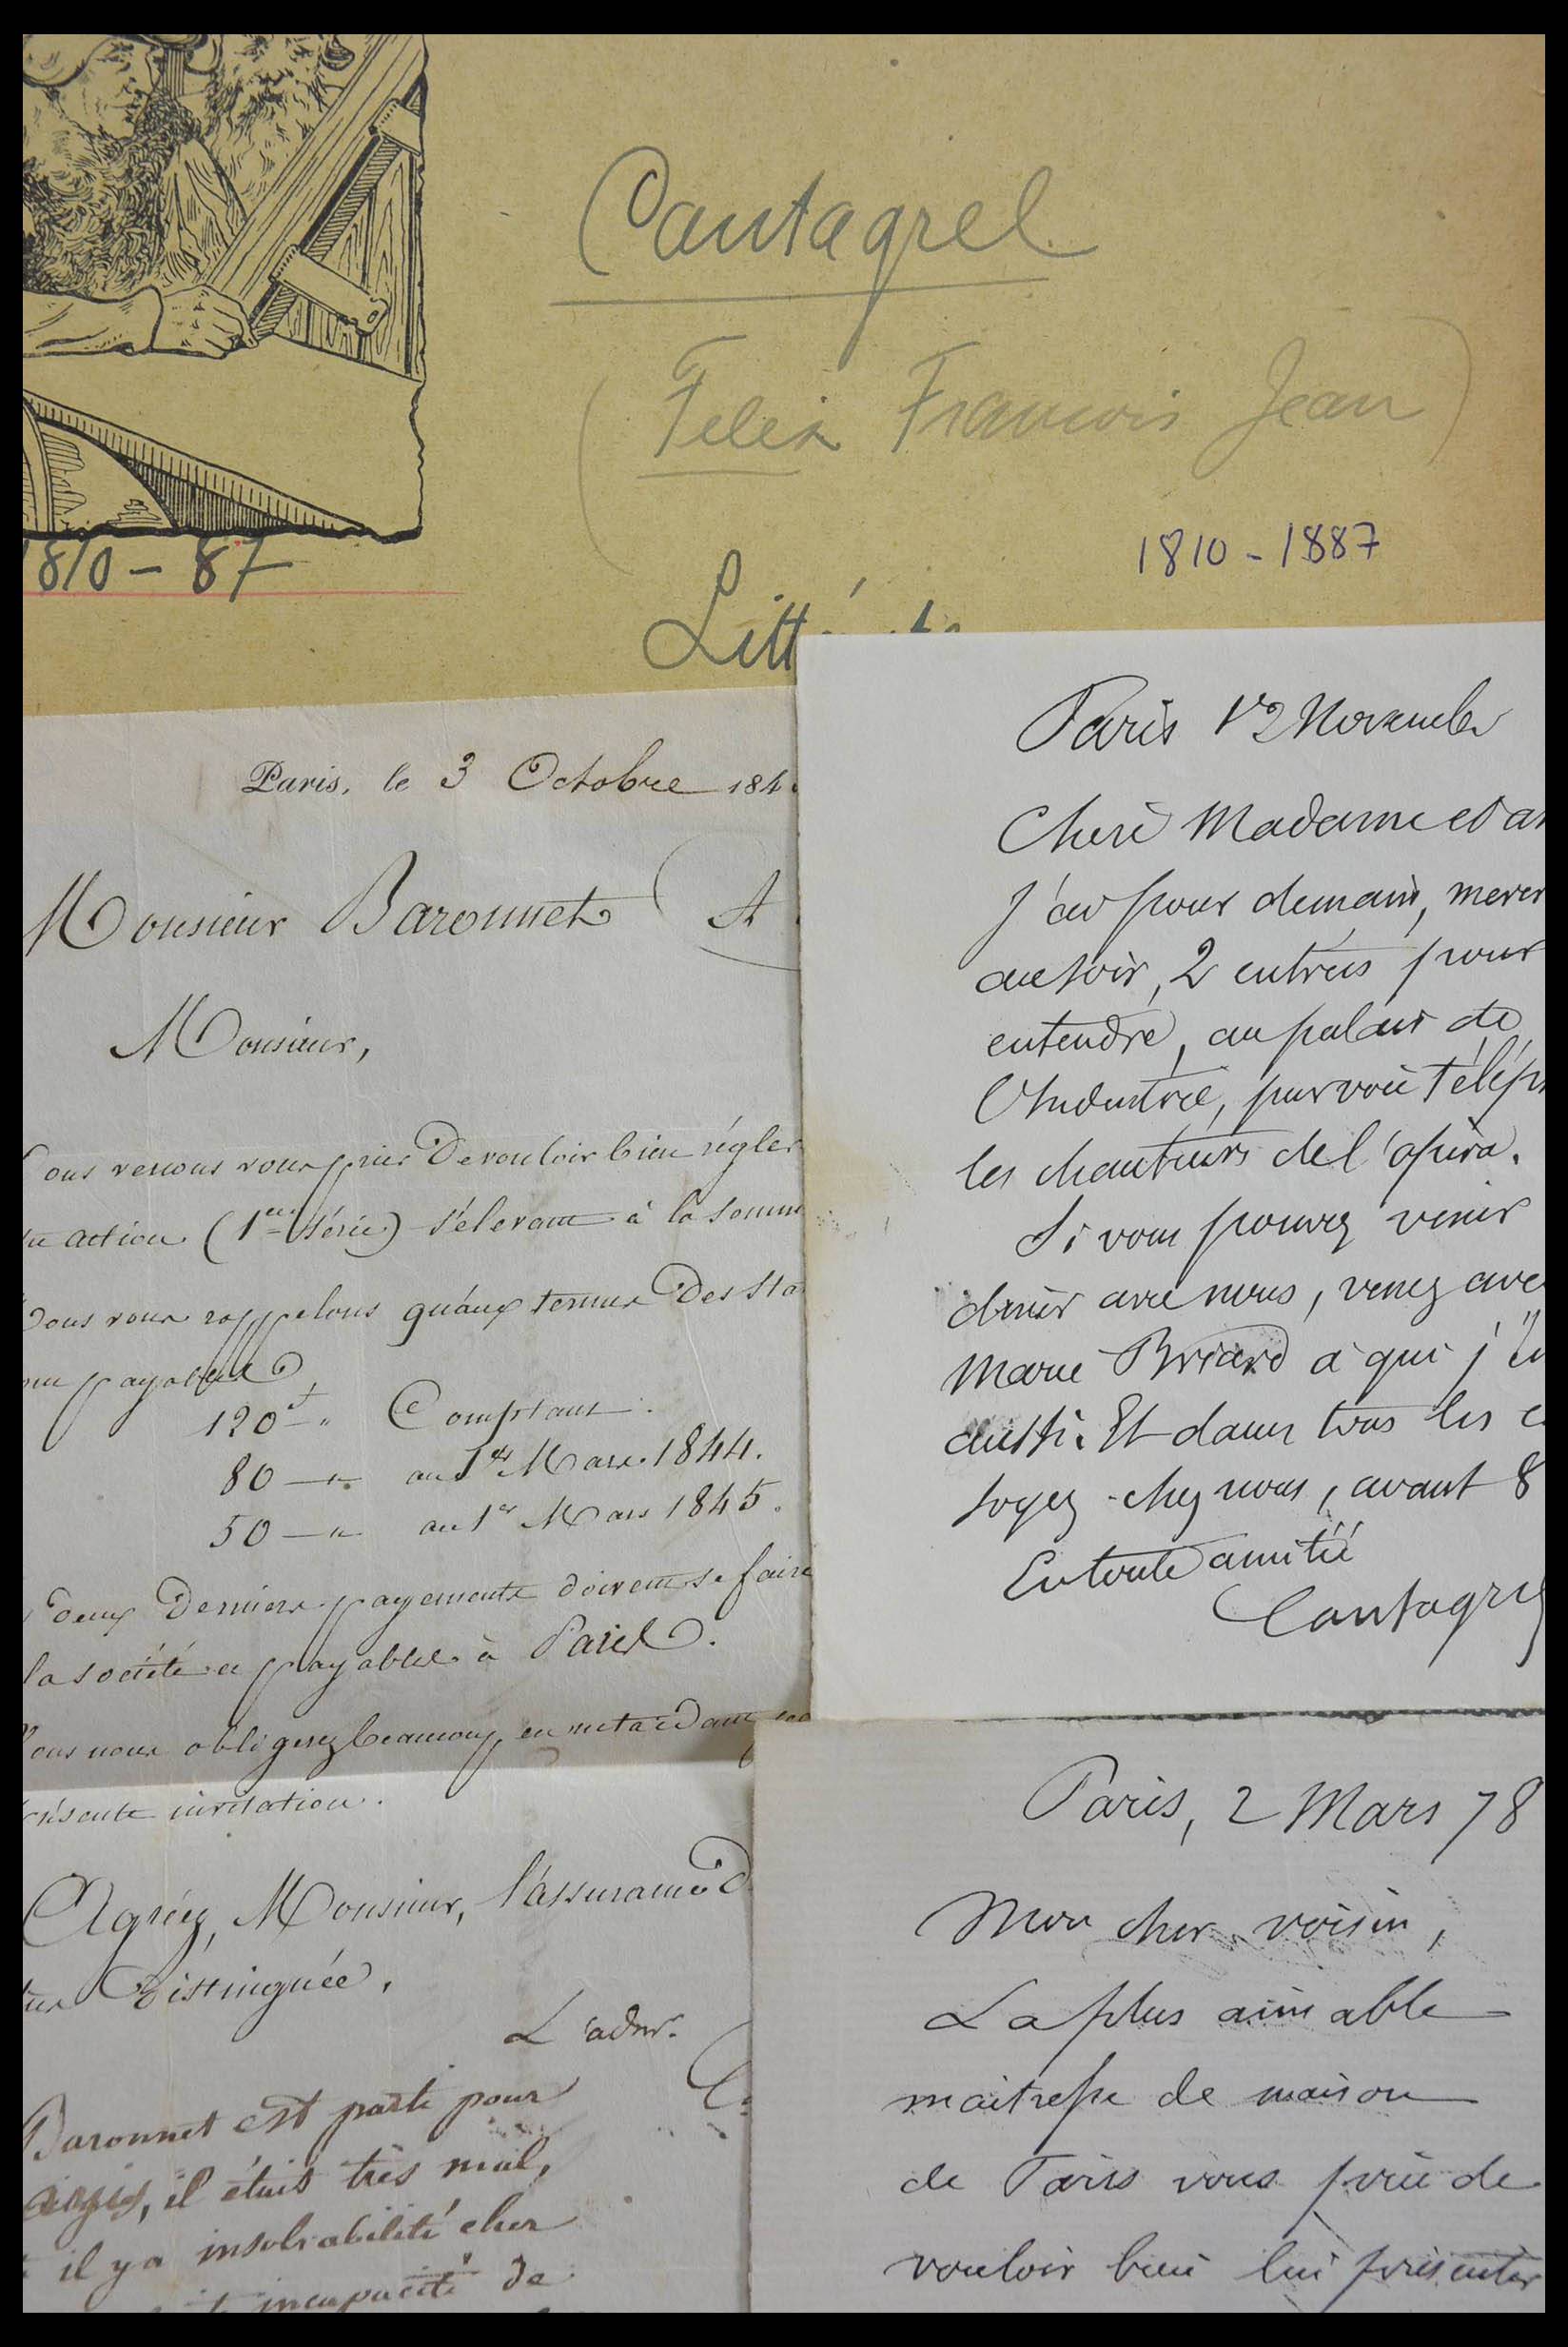 Cantagrel
(Felix Francois Jean)
1810-87
1810-1887
Litt
Paris, le 3 Octobre 184
Monsieur Baronnet (A
Monsieur,
ous venons vous prier de vouloir bien régler
action (1ere Série) s'élevant à la somm
ous vous rappelons qu'aux termes des Sta
payable
120 f " Comptant.
80 — " au 1er Mars 1844.
50 — " au 1er Mars 1845.
deux derniers payements doivent se faire
la société et payables à Paris.
ous nous obligerez beaucoup en
résente invitation.
Agréez, Monsieur, l'assurance d
distinguée.
L'adm.
Baronnet est parti pour
il était très mal,
il y a insolvabilité chez
incapacité de
Paris 1er 9 Novembre
Chere Madame et am
J'ai pour demain, mercr
au soir, 2 entrées pour
entendre, au palais de
l'Industrie, par voie téléph
les chanteurs de l'opéra.
Si vous pouvez venir
diner avec nous, venez avec
Marie Briard à qui j'éc
aussi. Et dans tous les c
soyez chez nous, avant 8
En toute amitié
Cantagrel
Paris, 2 Mars 78
Mon cher voisin,
La plus aimable
maitresse de maison
de Paris vous prie de
vouloir bien lui présenter